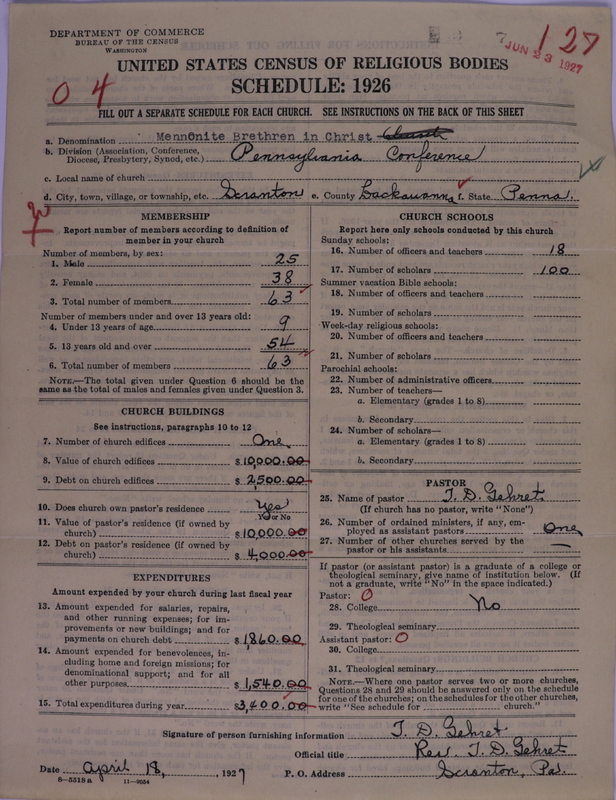 DEPARTMENT OF COMMERCE
BUREAU OF THE CENSUS
WASHINGTON
127
JUN 23 1927
UNITED STATES CENSUS OF RELIGIOUS BODIES
SCHEDULE: 1926
0 4
FILL OUT A SEPARATE SCHEDULE FOR EACH CHURCH. SEE INSTRUCTIONS ON THE BACK OF THIS SHEET
a. Denomination Mennonite Brethren in Christ Church
b. Division (Association, Conference, Diocese, Presbytery, Synod, etc.) Pennsylvania Conference
c. Local name of church
d. City, town, village, or township, etc. Scranton e. County Lackawanna f. State Penna.
MEMBERSHIP
Report number of members according to definition of
member in your church
Number of members, by sex:
1. Male 25
2. Female 38
3. Total number of members 63
Number of members under and over 13 years old:
4. Under 13 years of age 9
5. 13 years old and over 54
6. Total number of members 63
NOTE.—The total given under Question 6 should be the
same as the total of males and females given under Question 3.
CHURCH BUILDINGS
See instructions, paragraphs 10 to 12
7. Number of church edifices One
8. Value of church edifices $ 10,000.00
9. Debt on church edifices $ 2,500.00
10. Does church own pastor's residence Yes
Yes or No
11. Value of pastor's residence (if owned by
church) $ 10,000.00
12. Debt on pastor's residence (if owned by
church) $ 4,000.00
EXPENDITURES
Amount expended by your church during last fiscal year
13. Amount expended for salaries, repairs,
and other running expenses; for im-
provements or new buildings; and for
payments on church debt $ 1,860.00
14. Amount expended for benevolences, in-
cluding home and foreign missions; for
denominational support; and for all
other purposes $ 1,540.00
15. Total expenditures during year $ 3,400.00
CHURCH SCHOOLS
Report here only schools conducted by this church
Sunday schools:
16. Number of officers and teachers 18
17. Number of scholars 100
Summer vacation Bible schools:
18. Number of officers and teachers
19. Number of scholars
Week-day religious schools:
20. Number of officers and teachers
21. Number of scholars
Parochial schools:
22. Number of administrative officers
23. Number of teachers—
a. Elementary (grades 1 to 8)
b. Secondary
24. Number of scholars—
a. Elementary (grades 1 to 8)
b. Secondary
PASTOR
25. Name of pastor T. D. Gehret
(If church has no pastor, write "None")
26. Number of ordained ministers, if any, em-
ployed as assistant pastors One
27. Number of other churches served by the
pastor or his assistants —
If pastor (or assistant pastor) is a graduate of a college or
theological seminary, give name of institution below. (If
not a graduate, write "No" in the space indicated.)
Pastor: 0
28. College No
29. Theological seminary
Assistant pastor: 0
30. College
31. Theological seminary
NOTE.—Where one pastor serves two or more churches,
Questions 28 and 29 should be answered only on the schedule
for one of the churches; on the schedules for the other churches,
write "See schedule for church."
Signature of person furnishing information T. D. Gehret
Official title Rev. T. D. Gehret
Date April 18, 1927 P. O. Address Scranton, Pa.
8—5318 a 11—9054